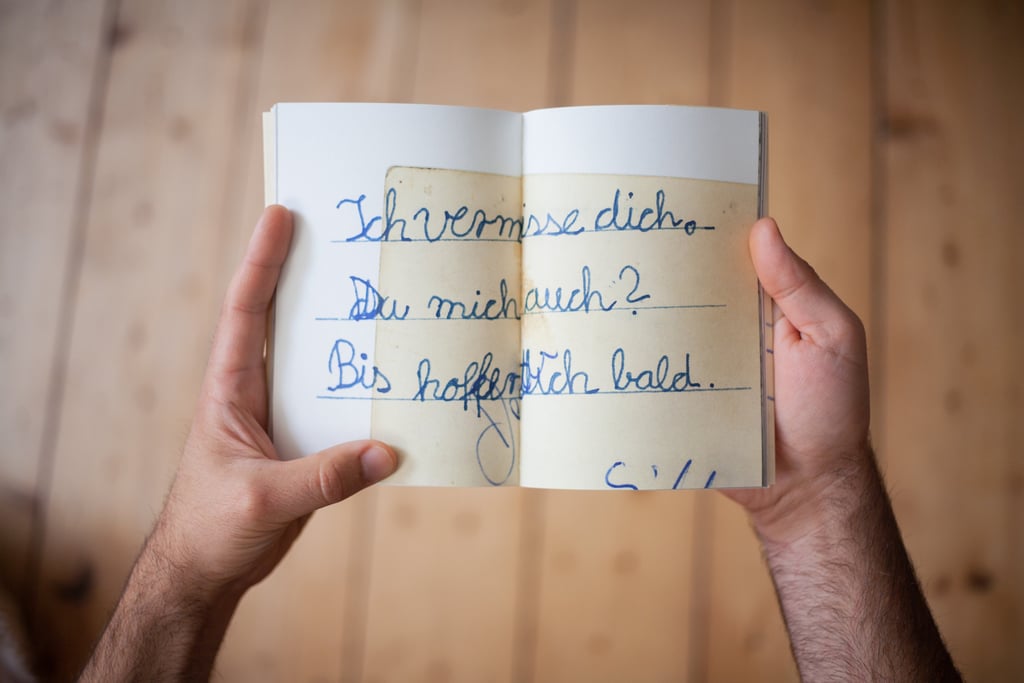 Ich vermisse dich.
Du mich auch?
Bis hoffentlich bald.